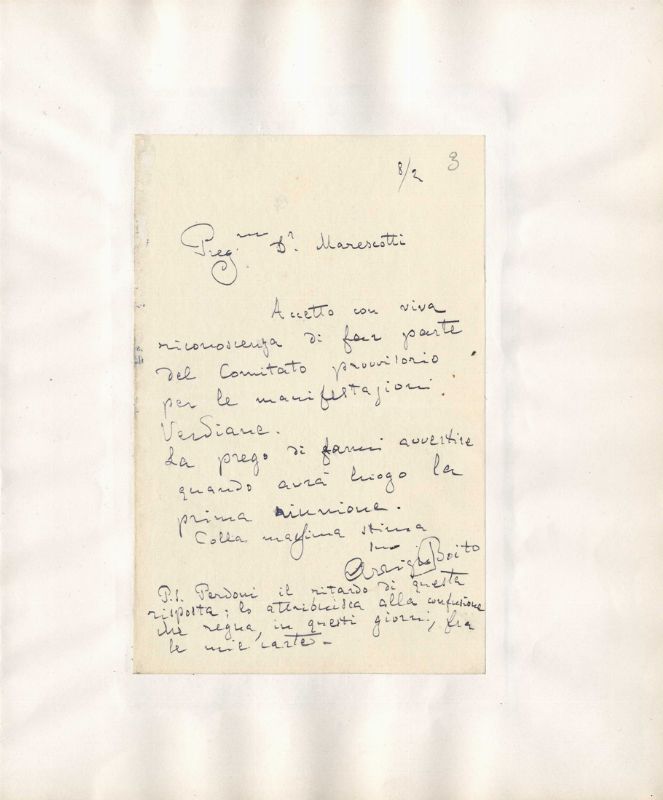 8/2 3
Preg.mo Dr. Marescotti
Accetto con viva
riconoscenza di far parte
del Comitato provvisorio
per le manifestazioni
Verdiane.
La prego di farmi avvertire
quando avrà luogo la
prima riunione.
Colla massima stima
Suo
Arrigo Boito
P.S. Perdoni il ritardo di questa
risposta; lo attribuisca alla confusione
che regna, in questi giorni, fra
le mie carte.